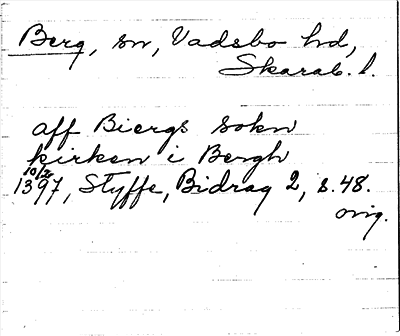 Berg, sn, Vadsbo hd,
Skarab. l.
aff Biergs sokn
kirken i Bergh
10/2
1397, Styffe, Bidrag 2, s. 48.
orig.